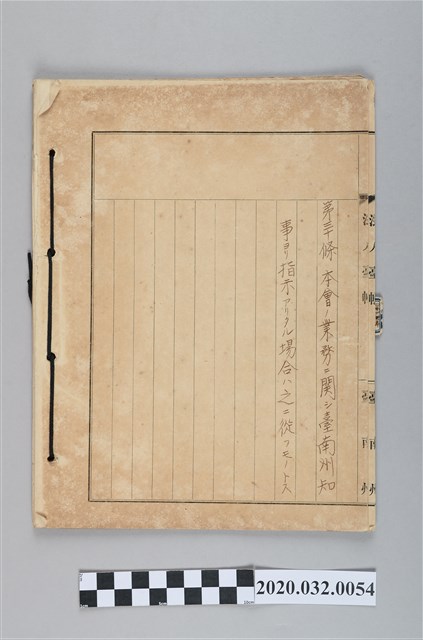 第三十條 本會ノ業務ニ関シ臺南州知
事ヨリ指示アリタル場合ハ之ニ從フモノトス
2020.032.0054